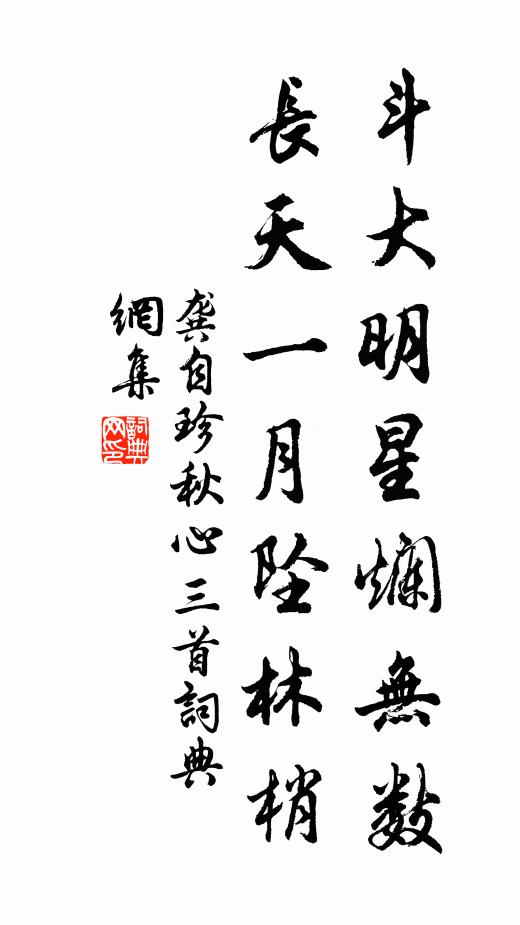 斗大明星爛無數
長天一月墜林梢
龔自珍秋心三首詞典
網集
詞典
网印